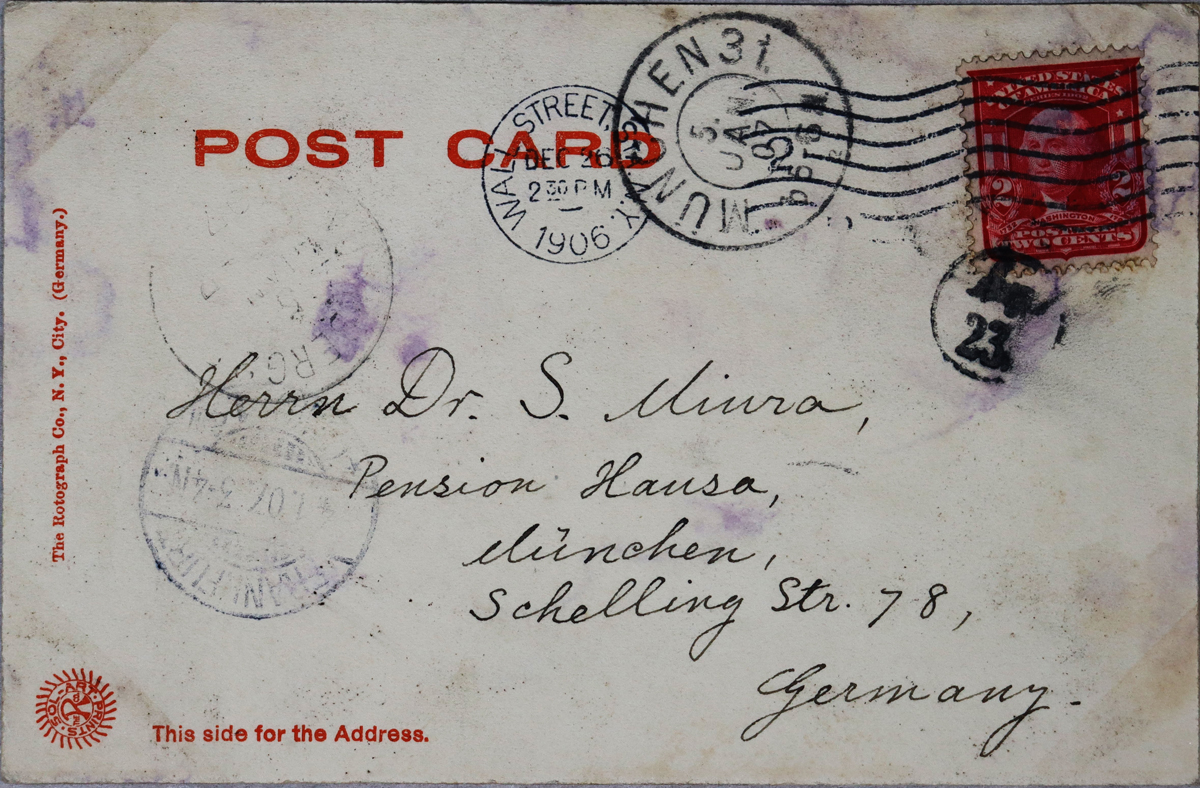 POST CARD
WALL STREET. STA. N.Y.
DEC 26
2 30 PM
1906
MÜNCHEN 31.
5.
JAN
07
UNITED STATES
OF AMERICA
2 2
WASHINGTON
POSTAGE
TWO CENTS
23.
ERG
FRANKFURT
4.1.07. 3-4N.
The Rotograph Co., N. Y., City. (Germany.)
Herrn Dr. S. Miura,
Pension Hausa,
München,
Schelling Str. 78,
Germany.
SOL-ART PRINTS
This side for the Address.